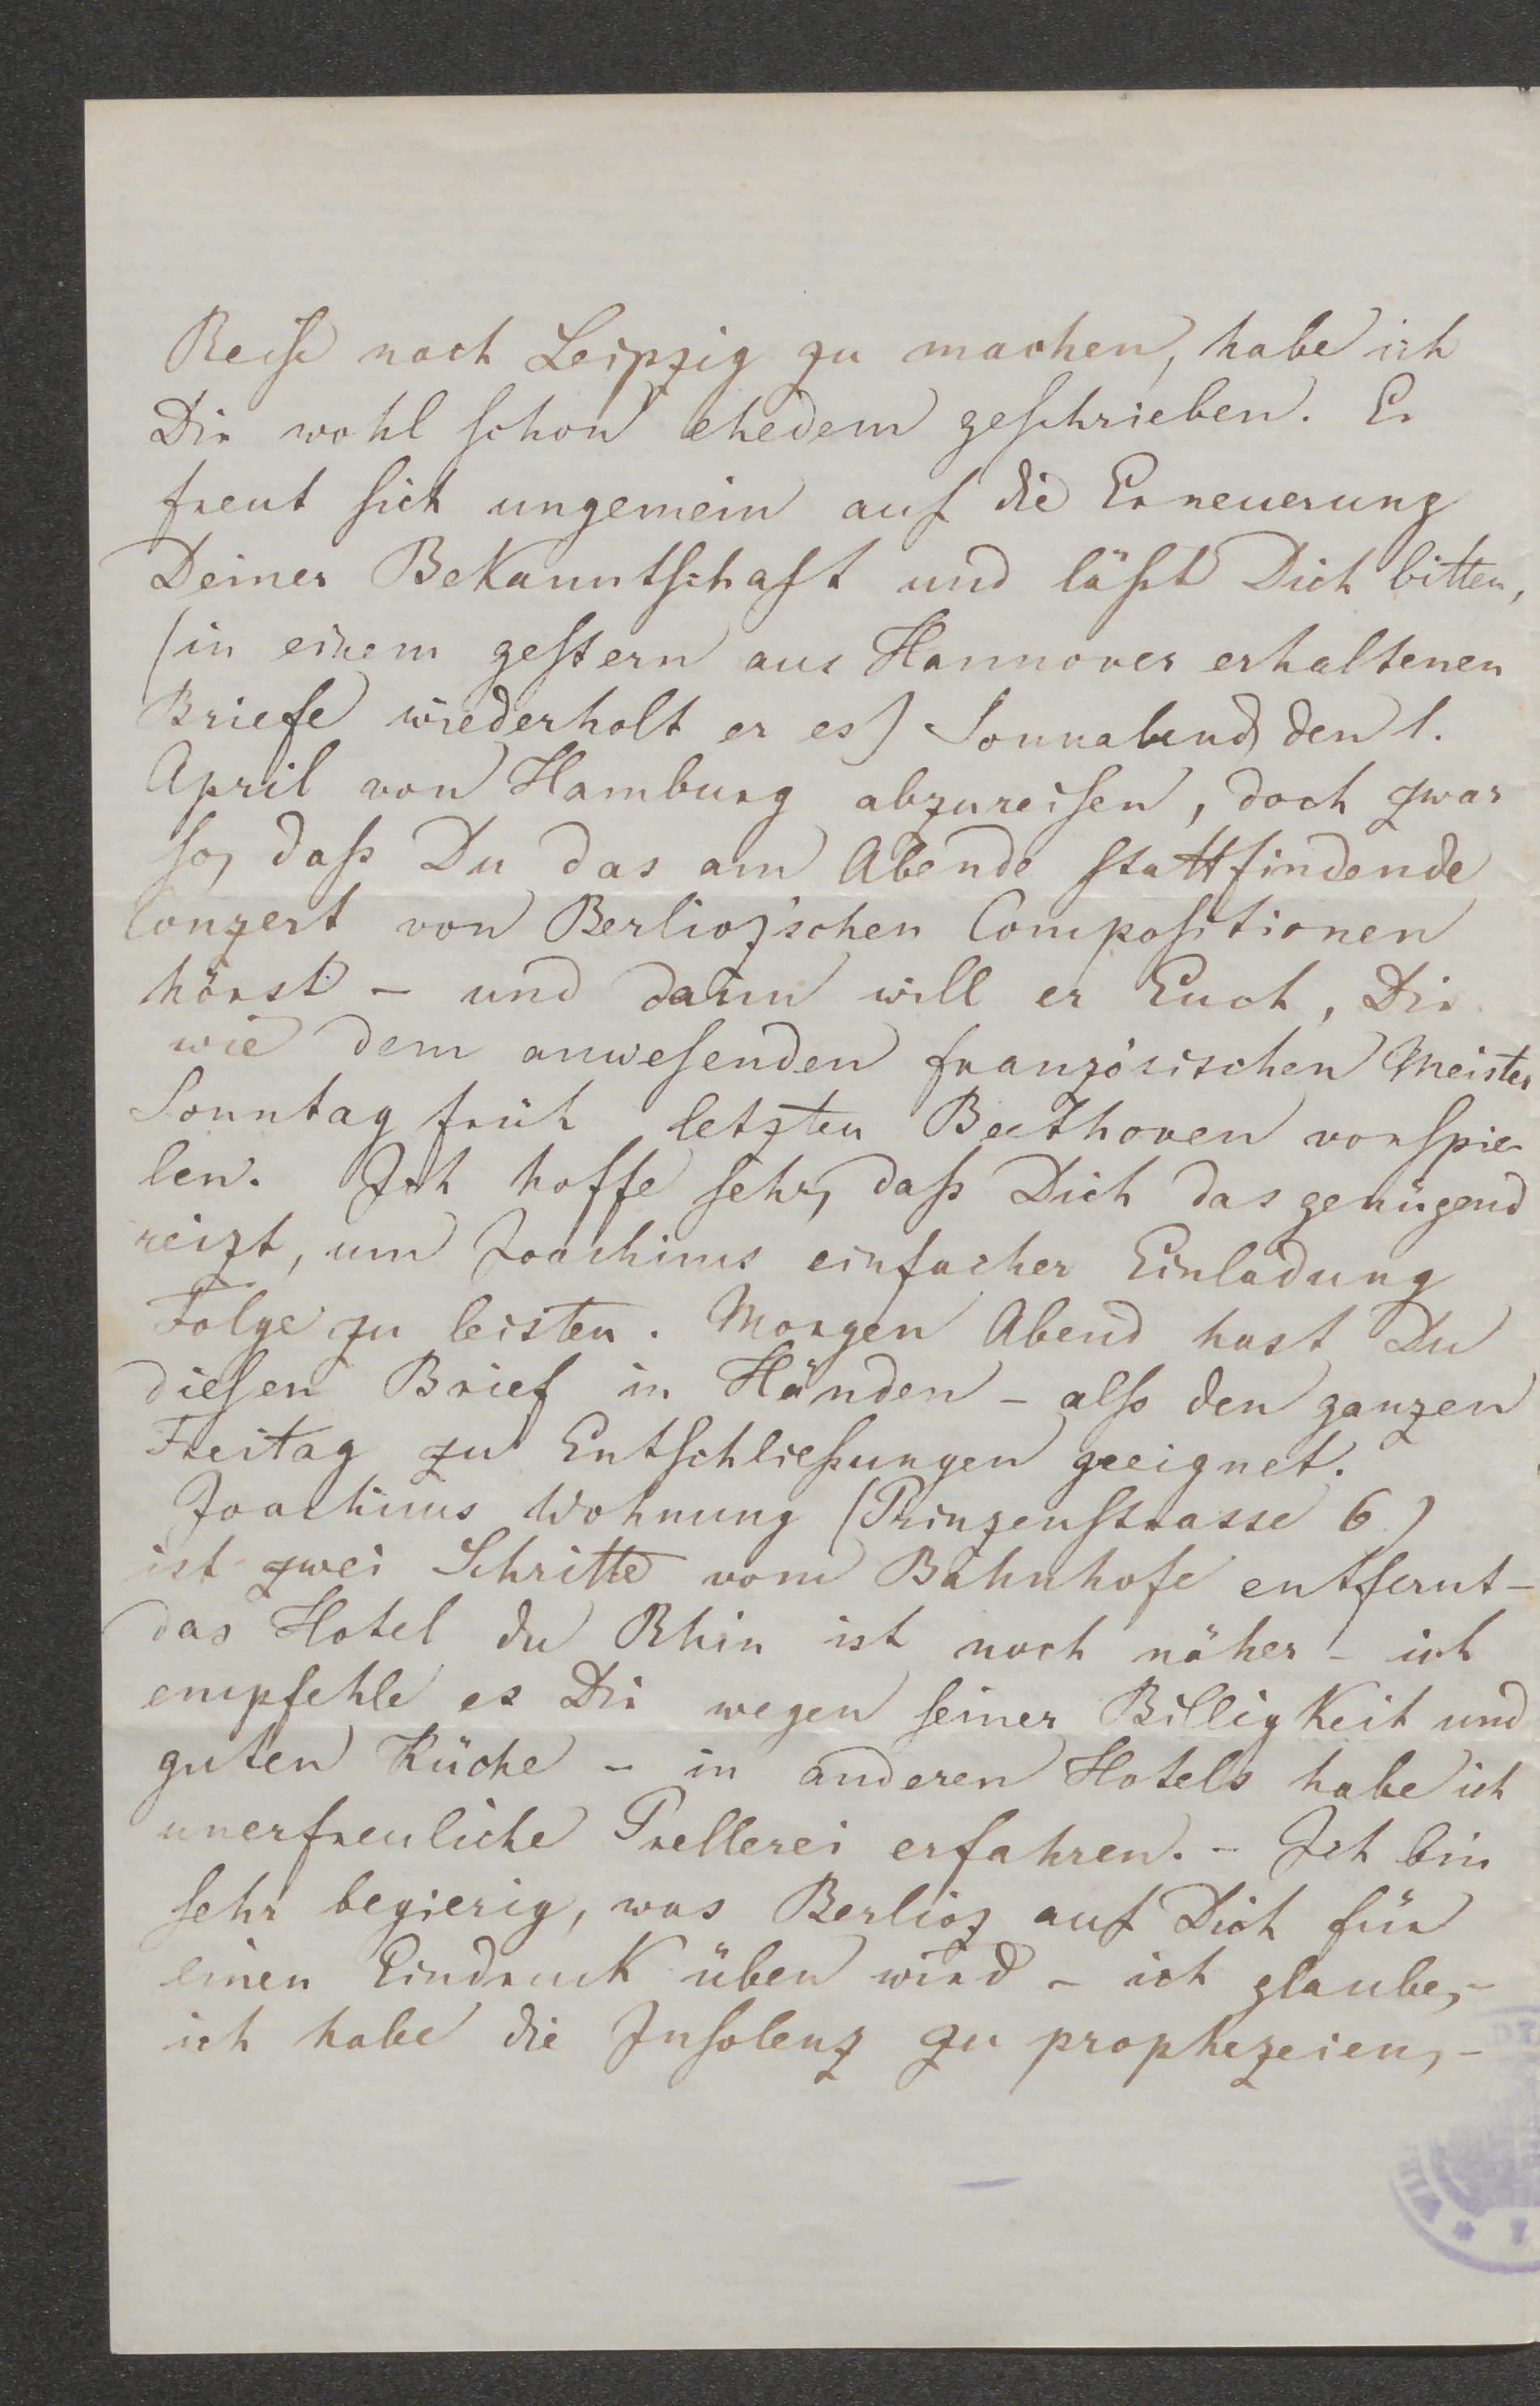 Reise nach Leipzig zu machen, habe ich
Dir wohl schon ehedem geschrieben. Er
freut sich ungemein auf die Erneuerung
Deiner Bekanntschaft und läßt Dich bitten,
(in einem gestern aus Hannover erhaltenen
Briefe wiederholt er es) Sonnabend den 1.
April von Hamburg abzureisen, doch zwar
so, daß Du das am Abende stattfindende
Conzert von Berlioz'schen Compositionen
hörst – und dann will er Euch, Dir
wie dem anwesenden französischen Meister
Sonntag früh letzten Beethoven vorspie-
len. Ich hoffe sehr, daß Dich das genügend
reizt, um Joachims einfacher Einladung
Folge zu leisten. Morgen Abend hast Du
diesen Brief in Händen – also den ganzen
Freitag zu Entschließungen geeignet.
Joachims Wohnung (Prinzenstrasse 6.)
ist zwei Schritte vom Bahnhofe entfernt –
das Hotel du Rhin ist noch näher – ich
empfehle es Dir wegen seiner Billigkeit und
guten Küche – in anderen Hotels habe ich
unerfreuliche Prellerei erfahren. – Ich bin
sehr begierig, was Berlioz auf Dich für
einen Eindruck üben wird – ich glaube, –
ich habe die Insolenz zu prophezeien, –